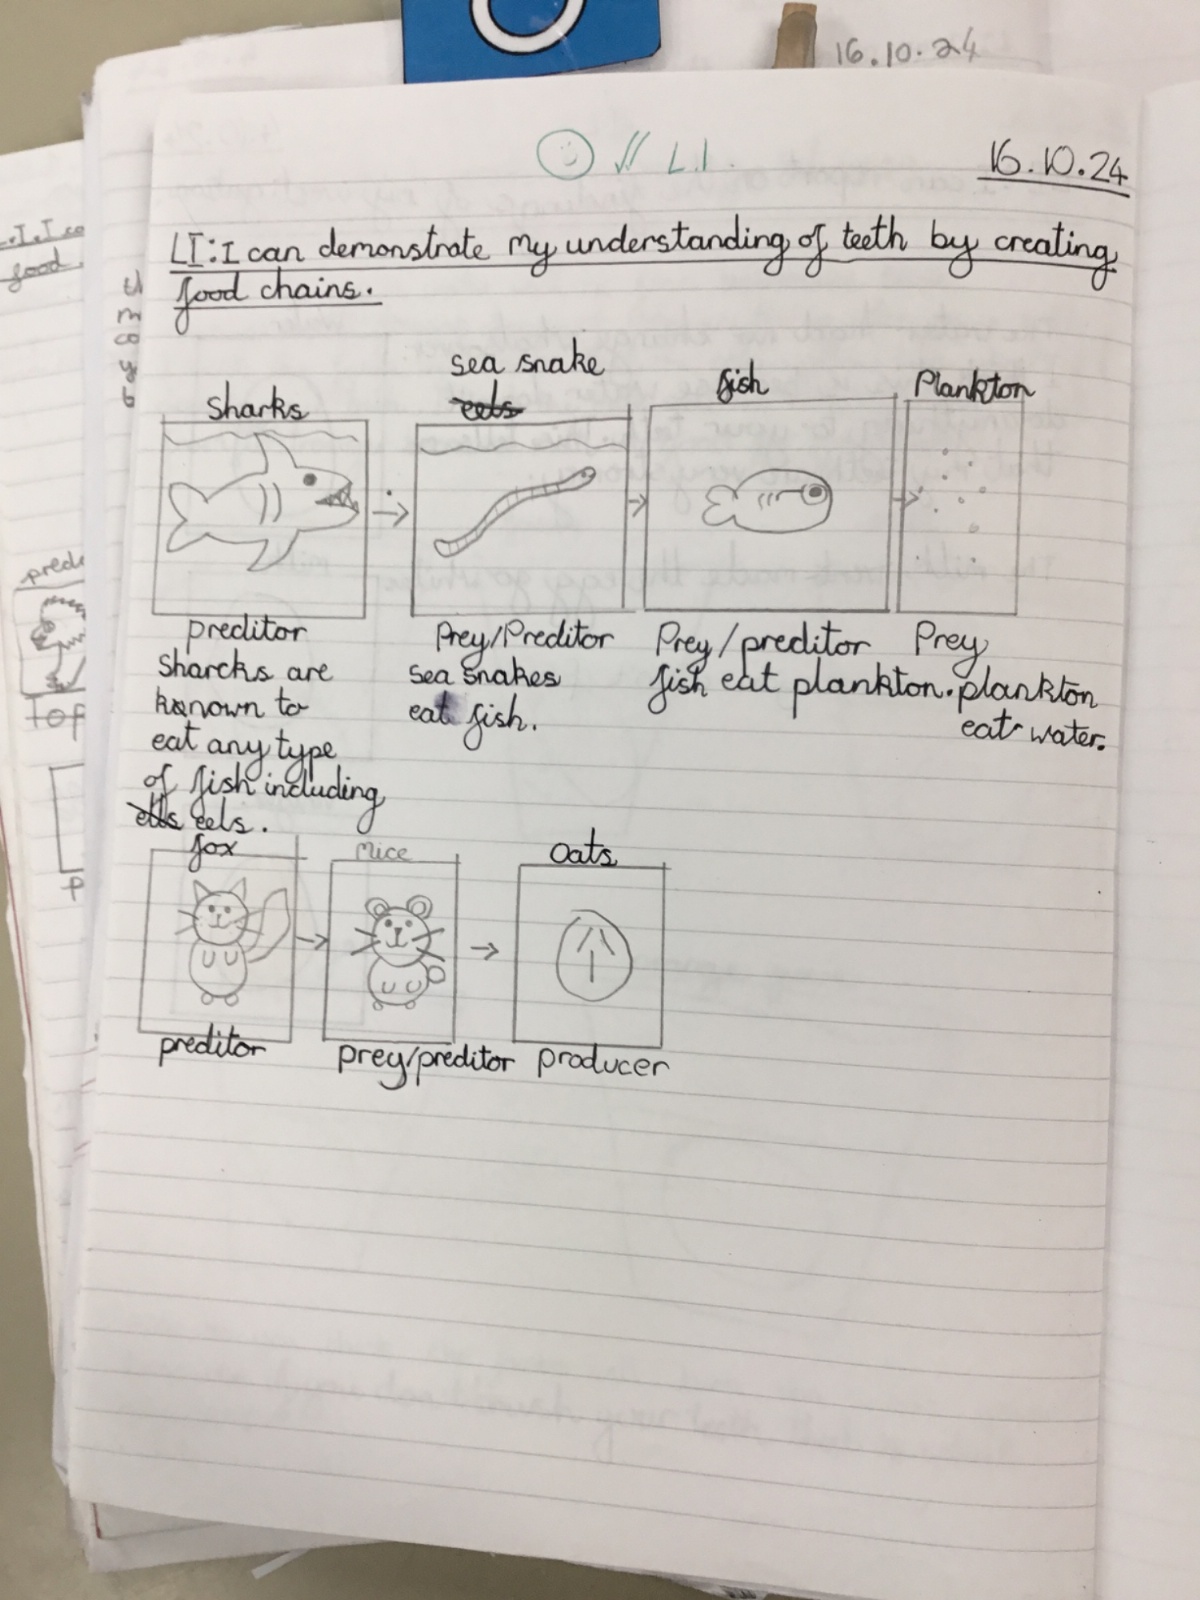 16.10.24
L.I.
16.10.24
LI: I can demonstrate my understanding of teeth by creating
food chains.
Sharks
sea snake
eels
fish
Plankton
preditor
Sharcks are
known to
eat any type
of fish including
eels.
Prey/Preditor
sea snakes
eat fish.
Prey/preditor
fish eat plankton.
Prey
plankton
eat water.
fox
Mice
oats
preditor
prey/preditor
producer
food
Top